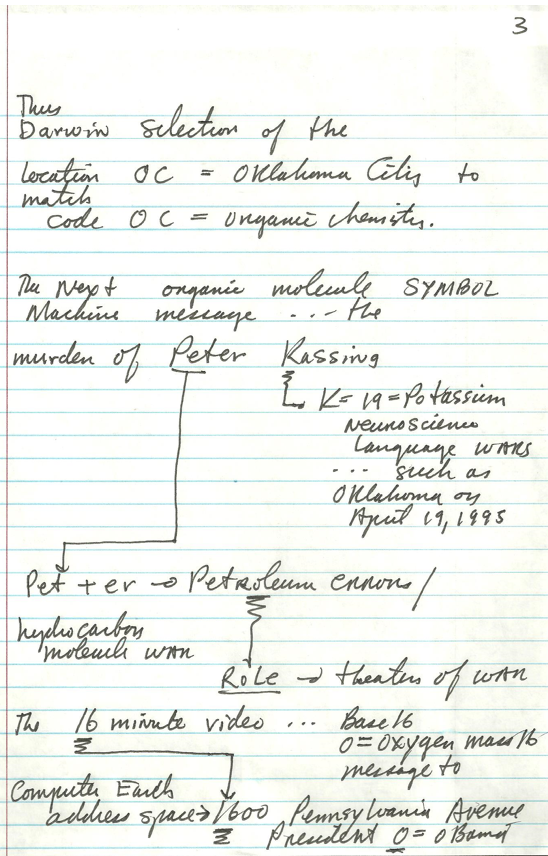 3
Thus
Darwin selection of the
location OC = Oklahoma City to
match
code OC = organic chemistry.
The Next organic molecule SYMBOL
Machine message ... the
murder of Peter Kassing
K = 19 = Potassium
Neuroscience
Language WARS
... such as
Oklahoma on
April 19, 1995
Pet + er → Petroleum errors /
hydrocarbon
molecule war
Role → theaters of war
The 16 minute video ... Base 16
O = Oxygen mass 16
message to
Computer Earth
address space → 1600 Pennsylvania Avenue
President O = Obama